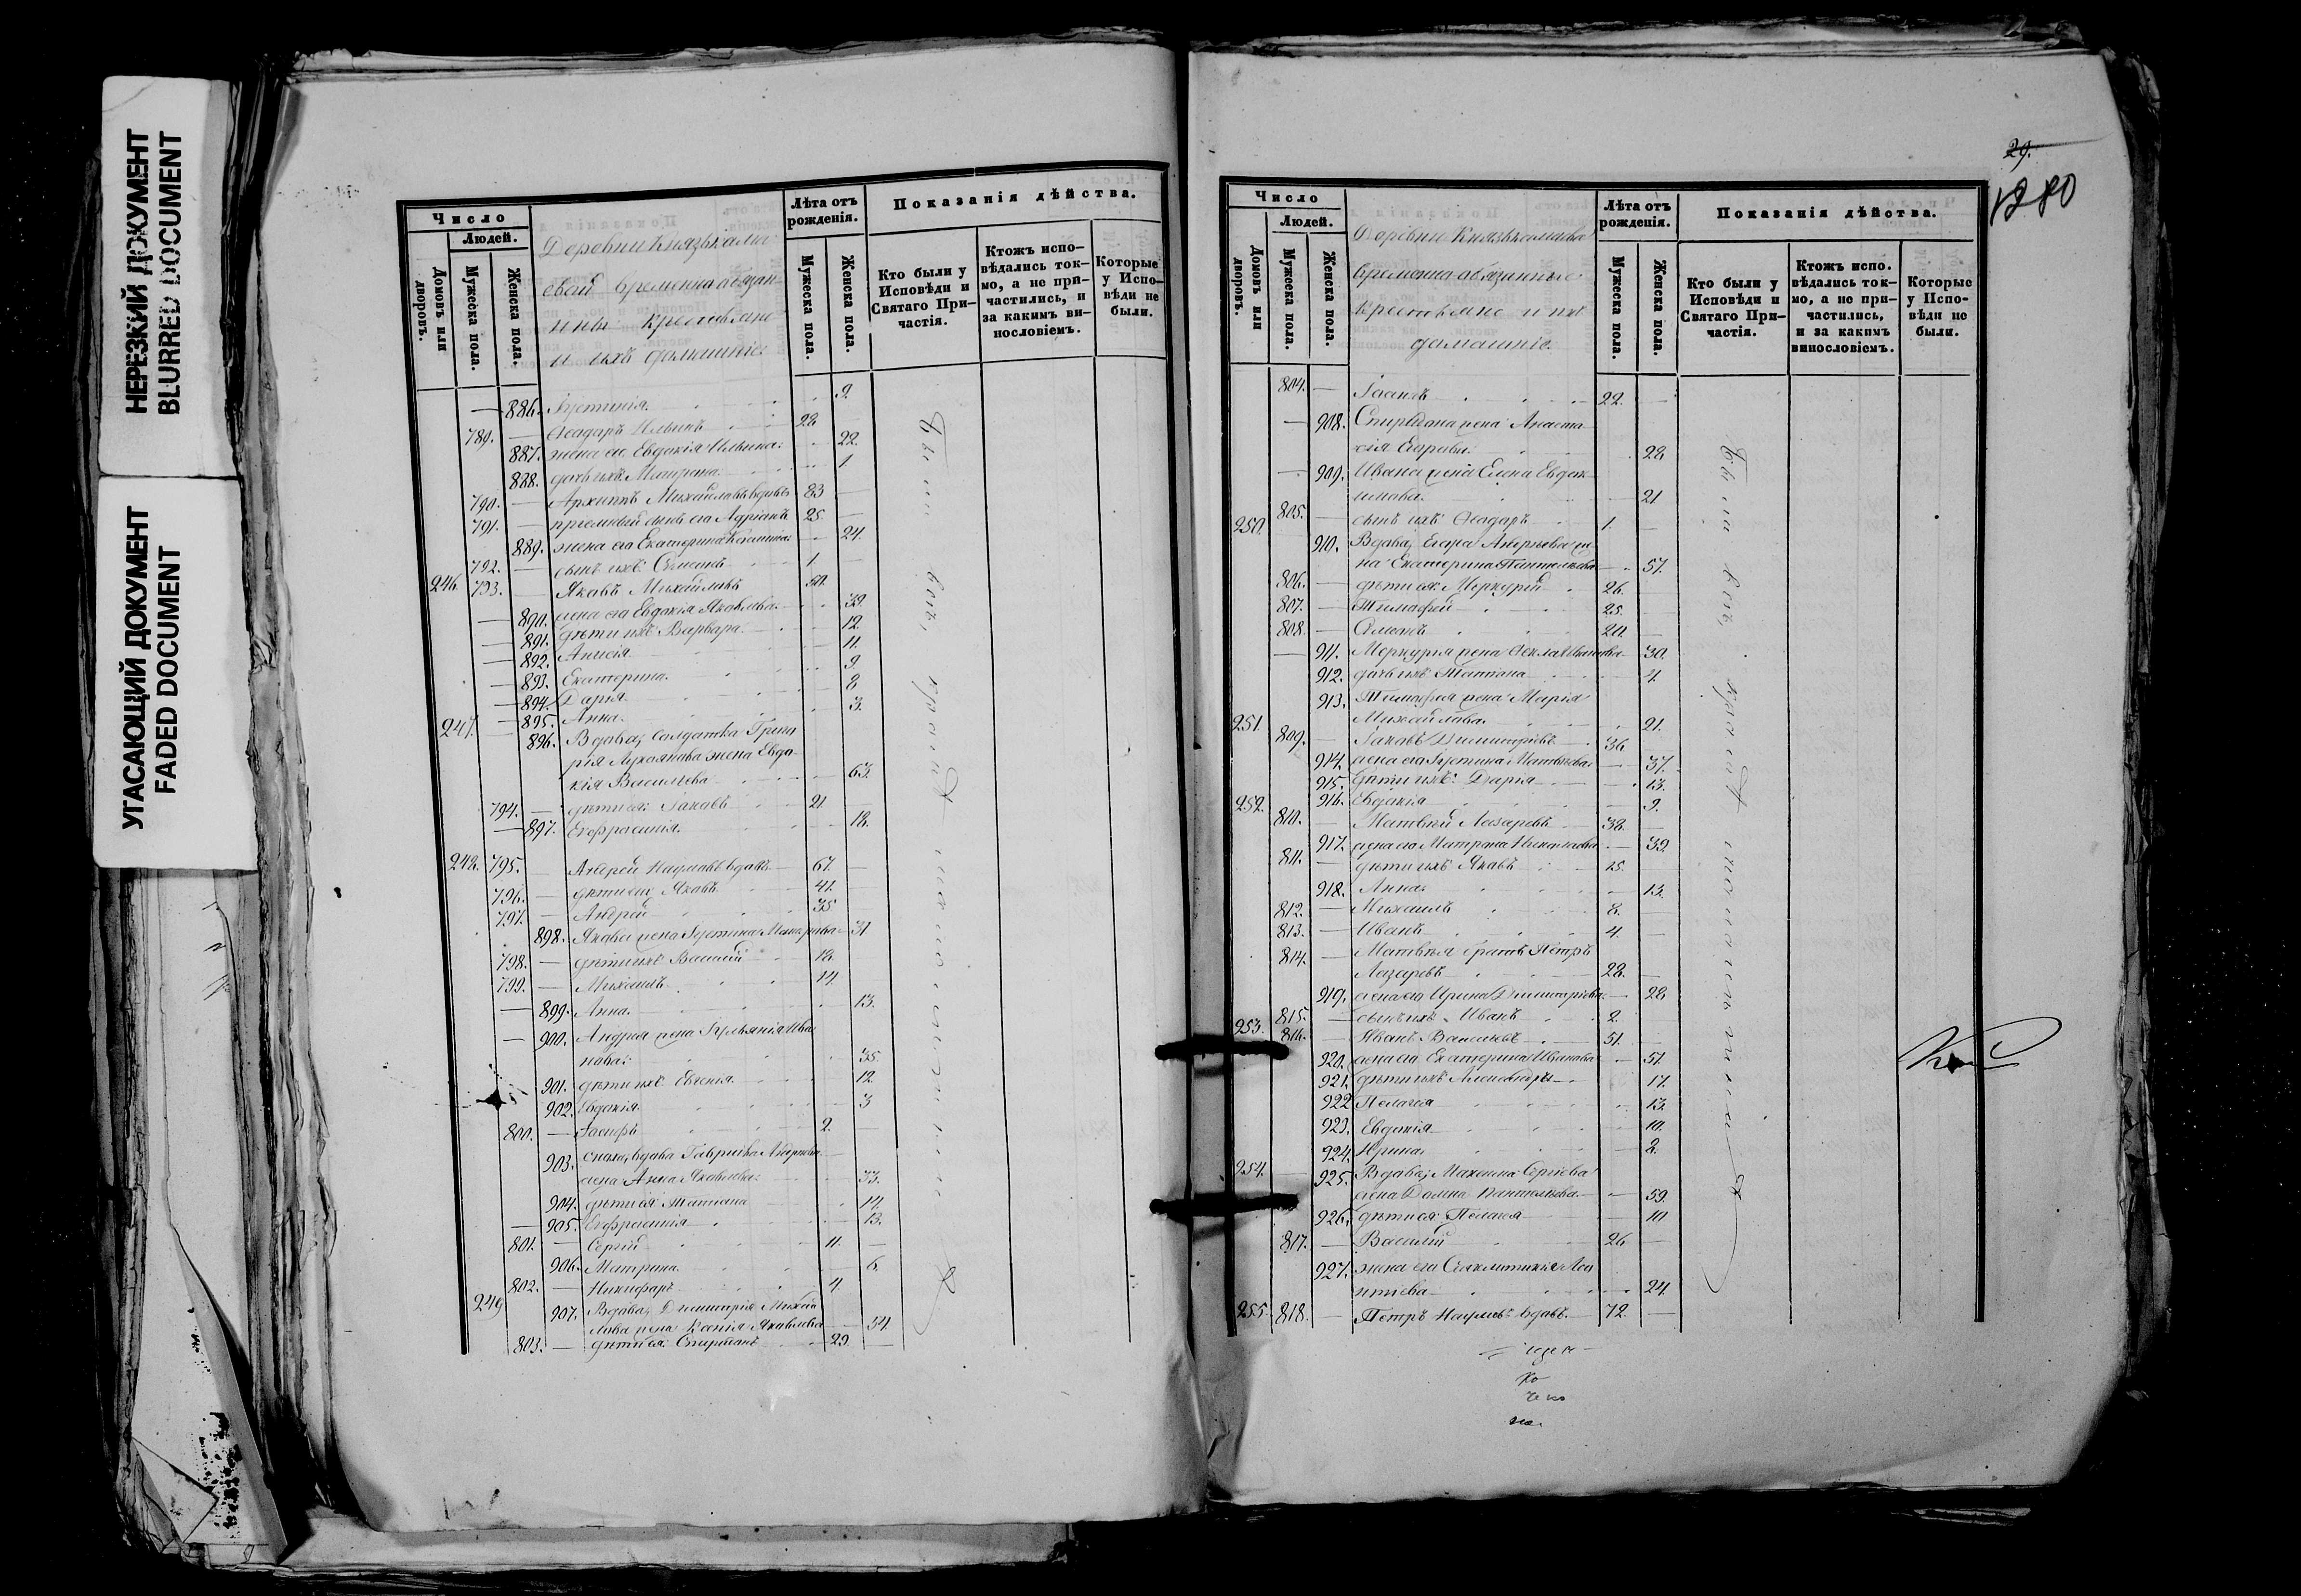 НЕРЕЗКИЙ ДОКУМЕНТ
BLURRED DOCUMENT
УГАСАЮЩИЙ ДОКУМЕНТ
FADED DOCUMENT
Число
Людей.
Домовъ или дворовъ.
Мужеска пола.
Женска пола.
Деревни Князь
временнообязан-
ныя крестьяне
и ихъ домашніе.
Лѣта отъ рожденія.
Мужеска пола.
Женска пола.
Показанія дѣйства.
Кто были у Исповѣди и Святаго Причастія.
Ктожъ исповѣдались токмо, а не причастились, и за какимъ винословіемъ.
Которые у Исповѣди не были.
886. Іустинія 9.
789. Ѳеодоръ Ильинъ 28
887. жена его Евдокія Ильина 22.
888. дочь ихъ Матрона 1
790. Архиппъ Михайловъ вдовъ 83
791. пріемный сынъ его Адріанъ 25.
889. жена его Екатерина 24.
792. сынъ ихъ Симеонъ 1.
246. 793. Яковъ Михайловъ
890. жена его Евдокія Яковлева 39.
891. дѣти ихъ: Варвара 12.
892. Анисія 11.
893. Екатерина 9.
894. Дарія 8
895. Анна 3.
247. 896. Вдова, солдатка Григо
рія Лукоянова жена Евдо
кія Васильева 63.
794. дѣти ея: Іаковъ 21
897. Евфросинія 18.
248. 795. Андрей Наумовъ вдовъ 67.
796. дѣти его Яковъ 41.
797. Андрей 35
898. Якова жена Іустина 31
798. дѣти ихъ Василій 18.
799. Михаилъ 14
899. Анна 13.
900. Андрея жена Іуліанія Ива
нова 35.
901. дѣти ихъ Евгенія 12.
902. Евдокія 3
800. Іосифъ 2.
903. сноха, вдова Гавріила Андреева
жена Анна Яковлева 33.
904. дѣти ея Татіана 14.
905. Евфросинія 13.
801. Сергій 11.
906. Матрона 6.
802. Никифоръ 4
249 907. Вдова, Димитрія Михай
лова жена Ксенія Яковлева 54.
803. дѣти ея: Спиридонъ 29.
Были всѣ, кромѣ
29.
Число
Людей.
Домовъ или дворовъ.
Мужеска пола.
Женска пола.
Деревни
временнообязанные
крестьяне и ихъ
домашніе.
Лѣта отъ рожденія.
Мужеска пола.
Женска пола.
Показанія дѣйства.
Кто были у Исповѣди и Святаго Причастія.
Ктожъ исповѣдались токмо, а не причастились, и за какимъ винословіемъ.
Которые у Исповѣди не были.
804. 22.
908. Спиридона жена Анаста
сія Егорова 28.
909. Ивана жена Елена Евдок
имова 21
805. сынъ ихъ Ѳеодоръ 1.
250. 910. Вдова, Егора Андреева же
на Екатерина Пантелеева 57.
806. дѣти ея: Меркурій 26.
807. Тимофей 25.
808. Симеонъ 20.
911. Меркурія жена Ѳекла Иванова 30.
912. дочь ихъ Татіана 4.
913. Тимофея жена Марія
Михайлова 21.
251. 809. Іаковъ Димитріевъ 36
914. жена его Іустина Матвѣева 37.
915. дѣти ихъ: Дарія 13.
916. Евдокія 9.
252. 810. Матвѣй Лазаревъ 38.
917. жена его Матрона Николаева 39.
811. дѣти ихъ Яковъ 15.
918. Анна 13.
812. Михаилъ 8.
813. Иванъ 4.
814. Матвѣя братъ Петръ
Лазаревъ 28.
919. жена его Ирина Димитріева 28
815. сынъ ихъ Иванъ 2.
253. 816. Иванъ Васильевъ 51.
920. жена его Екатерина Иванова 51.
921. дѣти ихъ Александра 17.
922 Пелагея 13.
923. Евдокія 10.
924. Ирина 2.
254. 925. Вдова, Максима Сергіева
жена Домна Пантелѣева 59.
926. дѣти ея: Пелагея 10
817. Василій 26
927. жена его Синклитикія Леон
тіева 24.
255. 818. Петръ Наумовъ вдовъ 72.
Были всѣ, кромѣ